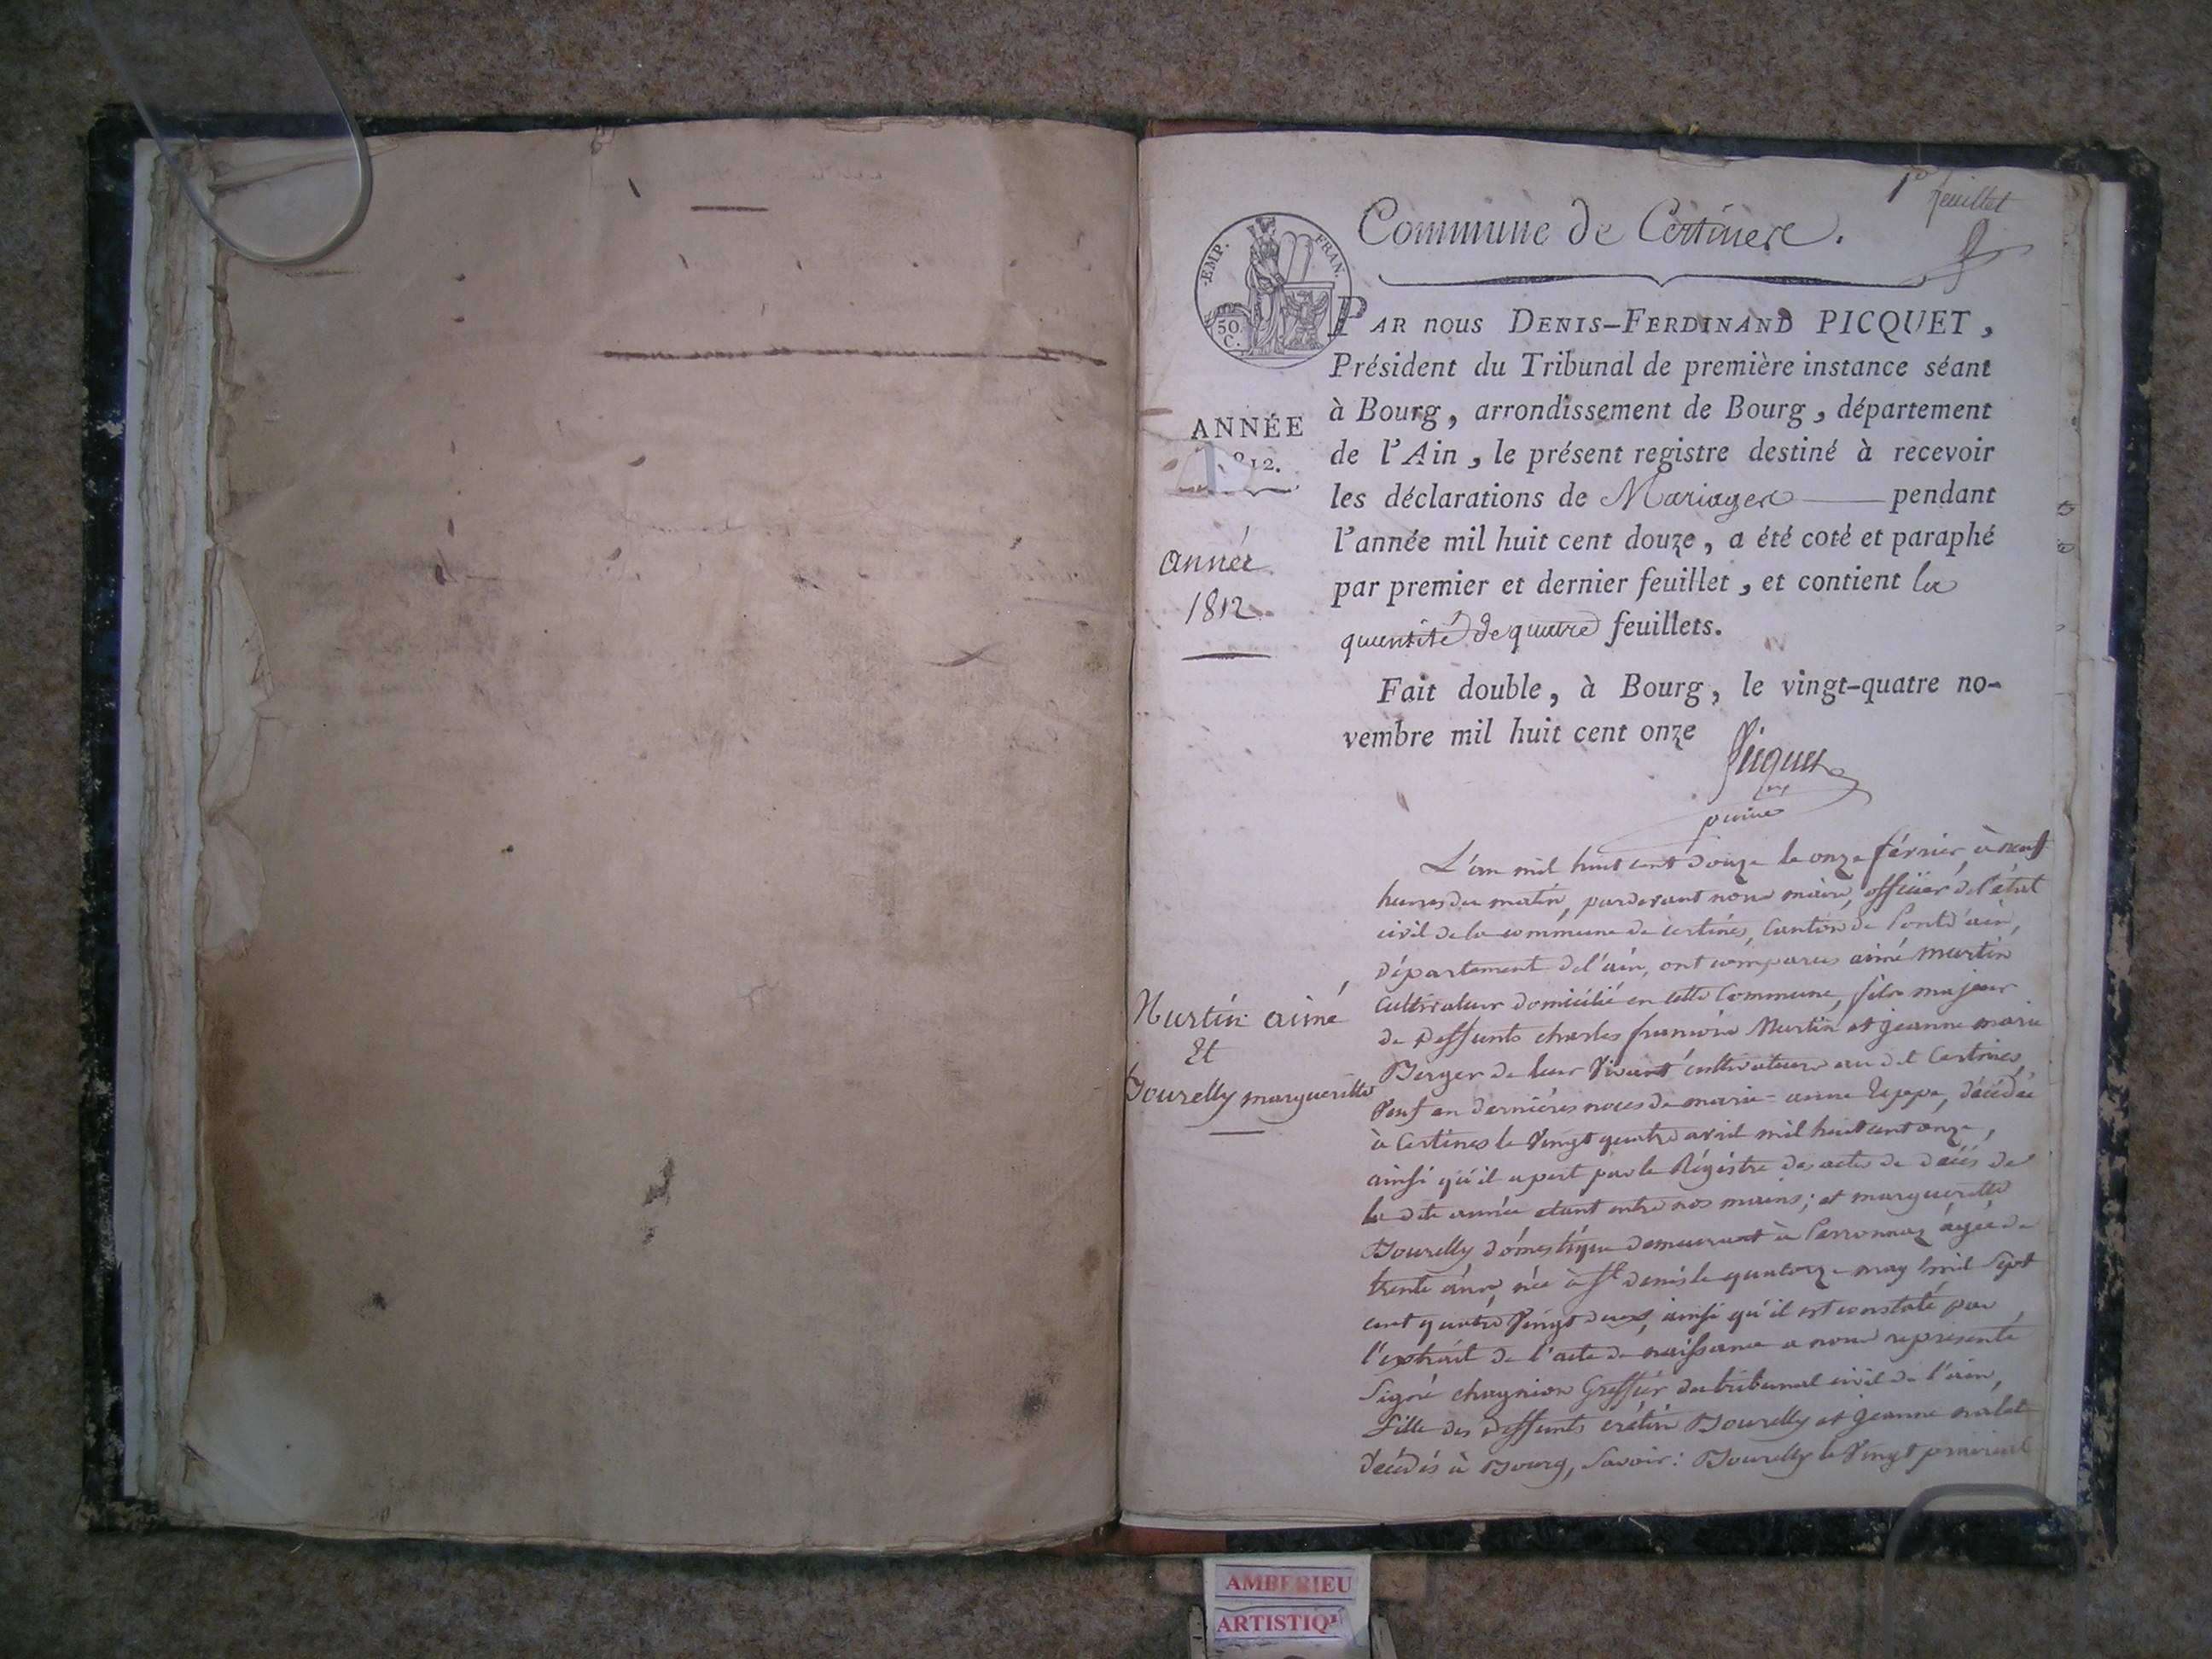 1er feuillet
Commune de Certines.
EMP. FRAN.
50 C.
PAR nous DENIS-FERDINAND PICQUET,
Président du Tribunal de première instance séant
à Bourg, arrondissement de Bourg, département
de l'Ain, le présent registre destiné à recevoir
les déclarations de Mariages pendant
l'année mil huit cent douze, a été coté et paraphé
par premier et dernier feuillet, et contient la
quantité de quatre feuillets.
Fait double, à Bourg, le vingt-quatre no-
vembre mil huit cent onze
Picquet
ANNÉE
1812.
année
1812
Martin aimé
Et
Bourelly margueritte
L'an mil huit cent douze le onze février, à neuf
heures du matin, pardevant nous maire, officier de l'état
civil de la commune de certines, Canton de Pontd'ain,
département de l'ain, ont comparus aimé martin
Cultivateur domicilié en cette Commune, fils majeur
de deffunts charles françois Martin et jeanne marie
Berger de leur Vivant cultivateurs au dit Certines,
Veuf en dernières noces de marie-anne décédée
à Certines le Vingt quatre avril mil huit cent onze,
ainsi qu'il apert par le Régistre des actes de décès de
la dite année etant entre nos mains; et margueritte
Bourelly doméstique demeurant à Perronnaz âgée de
trente ans, née à St denis le quatorze may mil Sept
cent quatre Vingt deux, ainsi qu'il est constaté par
l'extrait de l'acte de naissance a nous représenté
Signé chaynion Greffier du tribunal civil de l'ain,
fille des deffunts Bourelly et jeanne
décédés à Bourg, Savoir: Bourelly le Vingt prairial
AMBERIEU
ARTISTIQ